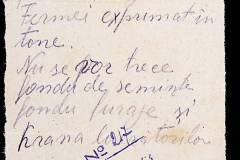 Fermei exprimat în
tone.
Nu se vor trece
fondu de seminte
fondu furaje și
hrana
No 27